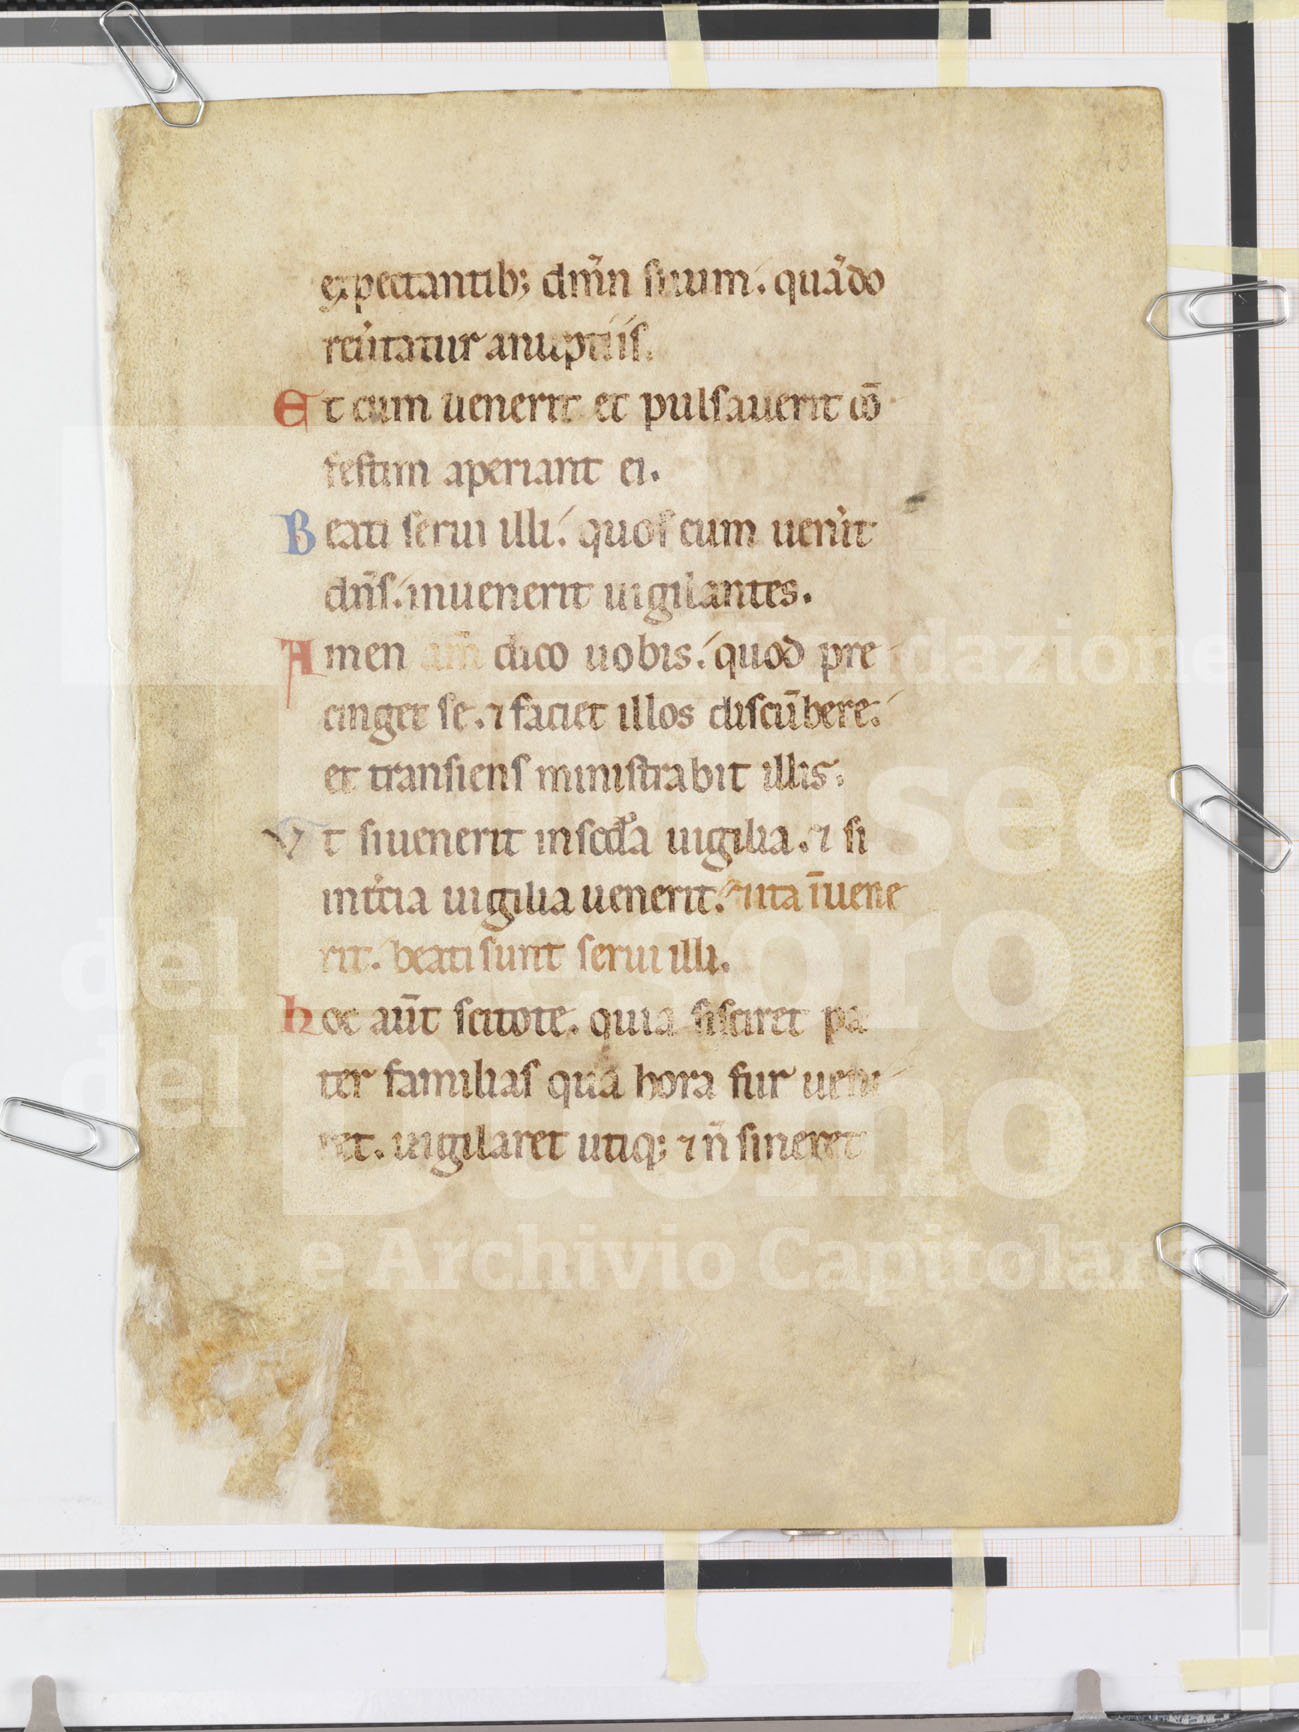 expectantib; dm̄n suum. quādo
reu̾tatur anuptiis.
Et cum uenerit et pulsauerit cō
festim aperiant ei.
Beati serui illi. quos cum uen̾it
dn̄s. inuenerit uigilantes.
Amen am̄ dico uobis. quod pre
cinget se. ⁊ faciet illos discūbere.
et transiens ministrabit illis.
Vt siuenerit insecd̾a uigilia. ⁊ si
int̾cia uigilia uenerit. ⁊ ita īuene
rit. beati sunt serui illi.
hoc aūt scitote. quia sisciret pa
ter familias qua hora fur ueni
ret. uigilaret utiq; ⁊ n̄ sineret
Fondazione
Museo
del Tesoro
del Duomo
e Archivio Capitolare